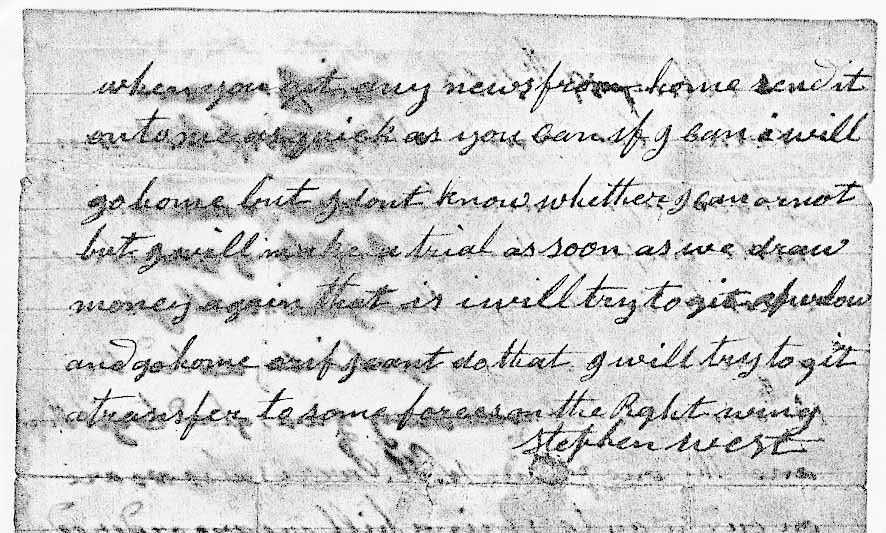 when you git any news from home send it
on to me as quick as you can if I can i will
go home but I dont know whether I can or not
but I will make a trial as soon as we draw
money again that is i will try to git a furlow
and go home or if I cant do that I will try to git
a transfer to some forces on the Right wing
Stephen West